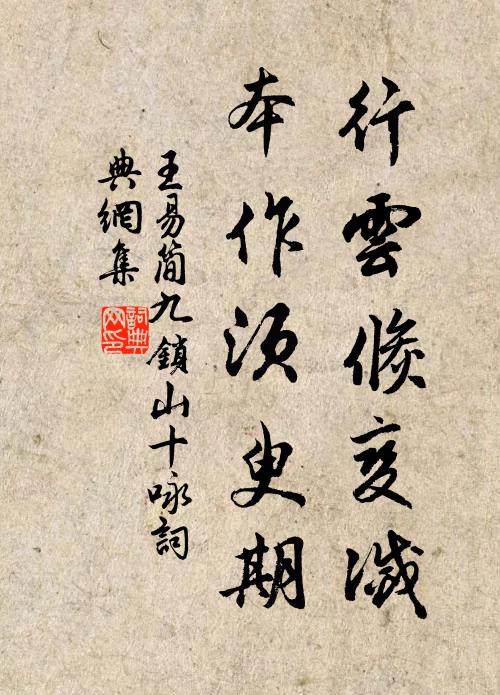 行雲倏变滅
本作須臾期
王易简九鎖山十咏詞
典網集
詞典
网印